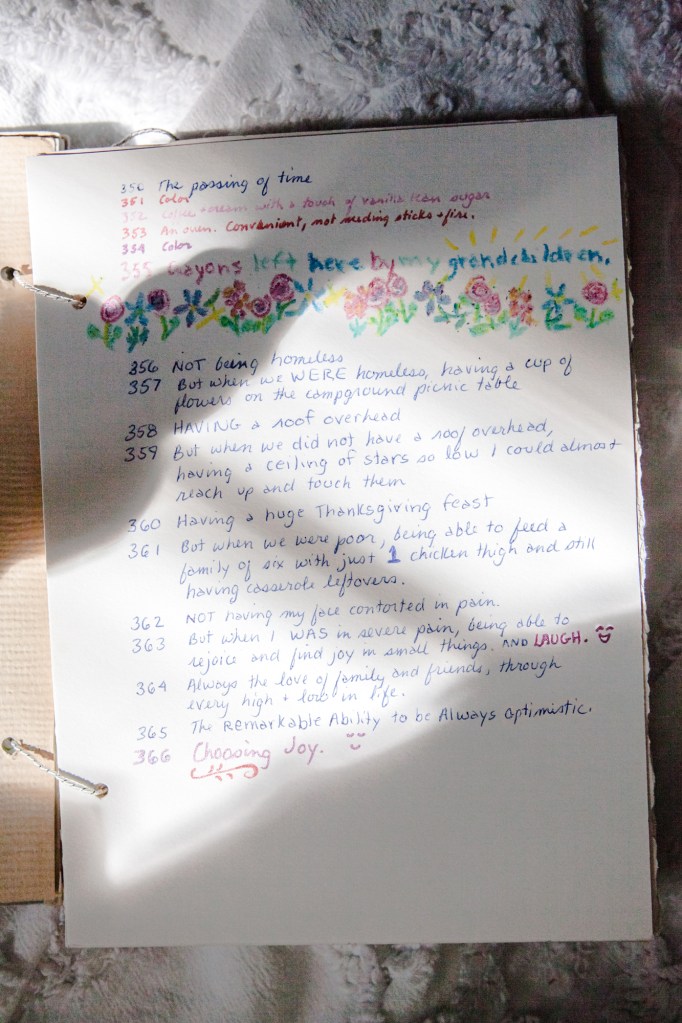 350 The passing of time
351 Color
352 Coffee + cream with a touch of vanilla bean sugar
353 An oven. Convenient, not needing sticks + fire.
354 Color
355 Crayons left here by my grandchildren.
356 NOT being homeless
357 But when we WERE homeless, having a cup of
flowers on the campground picnic table
358 HAVING a roof overhead
359 But when we did not have a roof overhead,
having a ceiling of stars so low I could almost
reach up and touch them
360 Having a huge Thanksgiving feast
361 But when we were poor, being able to feed a
family of six with just 1 chicken thigh and still
having casserole leftovers.
362 NOT having my face contorted in pain.
363 But when I WAS in severe pain, being able to
rejoice and find joy in small things. AND LAUGH.
364 Always the love of family and friends, through
every high + low in life.
365 The Remarkable Ability to be Always Optimistic.
366 Choosing Joy.